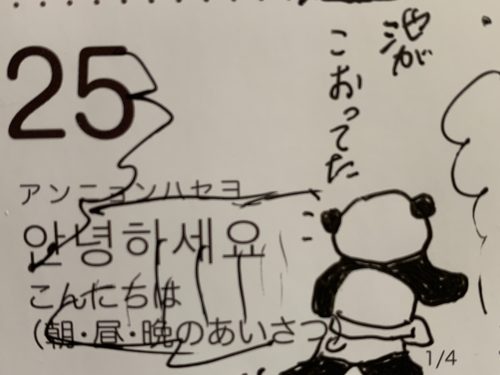 25
アンニョンハセヨ
안녕하세요
こんにちは
(朝・昼・晩のあいさつ)
池が
こおってた
1/4